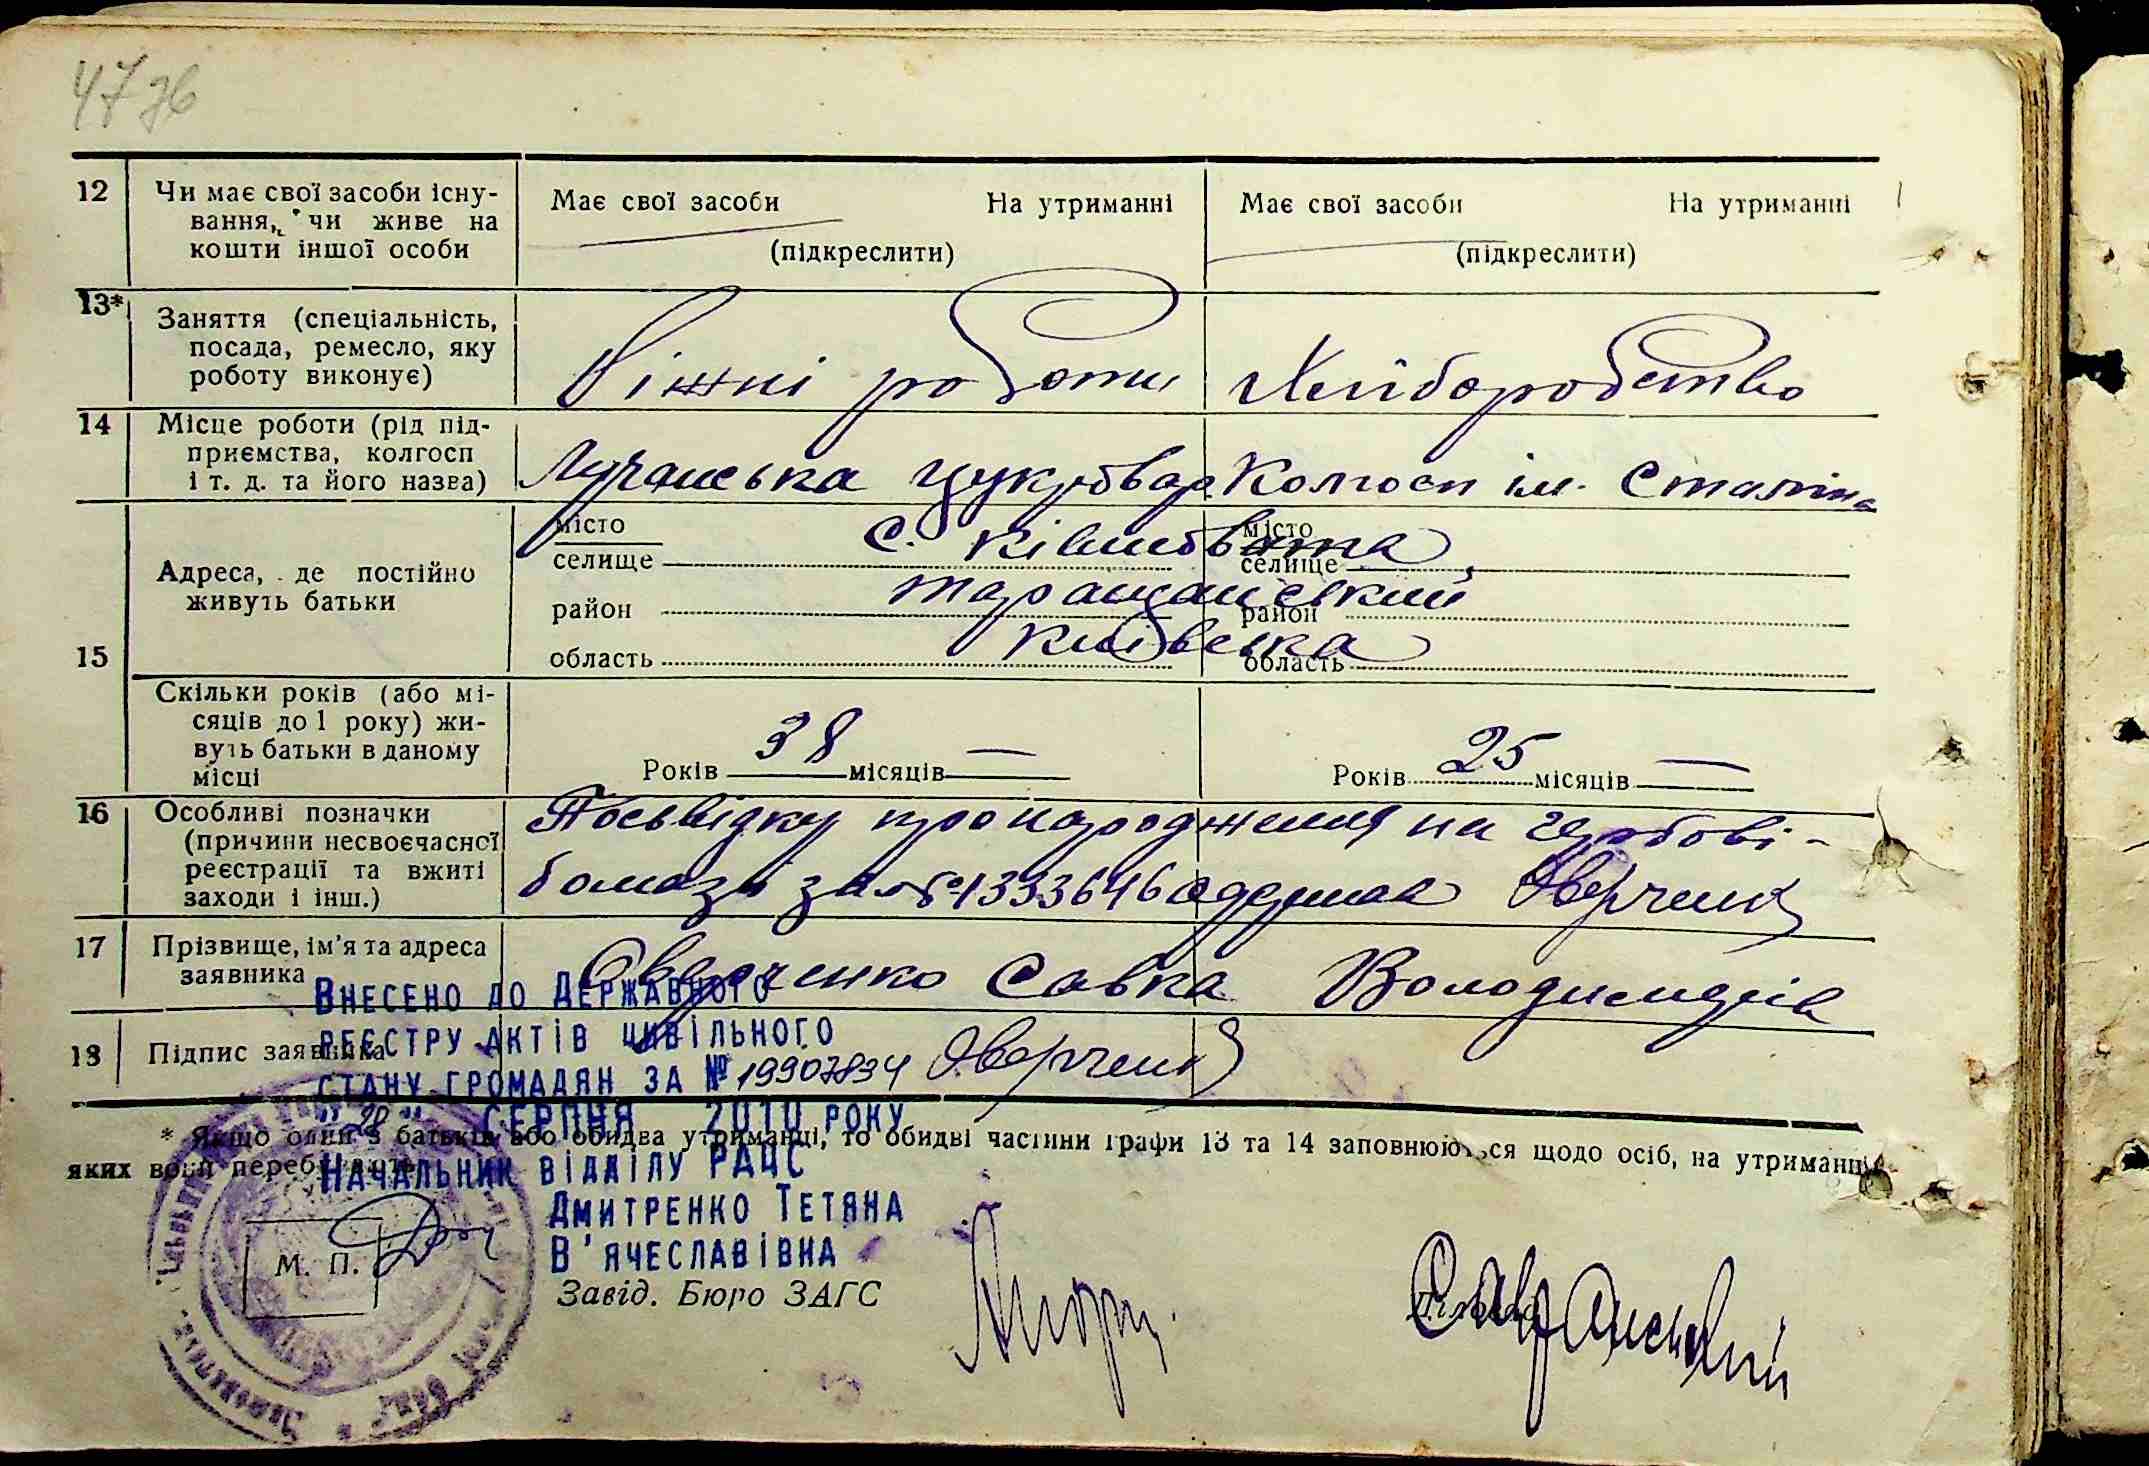 47 зв
12 Чи має свої засоби існу-
вання, чи живе на
кошти іншої особи
Має свої засоби На утриманні
(підкреслити)
Має свої засоби На утриманні
(підкреслити)
13* Заняття (спеціальність,
посада, ремесло, яку
роботу виконує)
Ріжні роботи
Хліборобство
14 Місце роботи (рід під-
приємства, колгосп
і т. д. та його назва)
Лучанська цукровар.
Колгосп ім. Сталіна
15 Адреса, де постійно
живуть батьки
місто
селище
район
область
місто
селище
район
область
с. Ківшовата
Таращанський
Київська
Скільки років (або мі-
сяців до 1 року) жи-
вуть батьки в даному
місці
Років 38 місяців —
Років 25 місяців —
16 Особливі позначки
(причини несвоєчасної
реєстрації та вжиті
заходи і інш.)
Посвідку про народження на гербові-
бомазі за № 1333646 одержав Оверченко
17 Прізвище, ім'я та адреса
заявника
Оверченко Савка Володимирів
18 Підпис заявника
Оверченко
Внесено до Державного
реєстру актів цивільного
стану громадян за № 19907834
"28" серпня 2010 року
Начальник відділу РАЦС
Дмитренко Тетяна
В'ячеславівна
* Якщо один з батьків або обидва утриманці, то обидві частини графи 13 та 14 заповнюються щодо осіб, на утриманні
яких вони перебувають
М. П.
Завід. Бюро ЗАГС